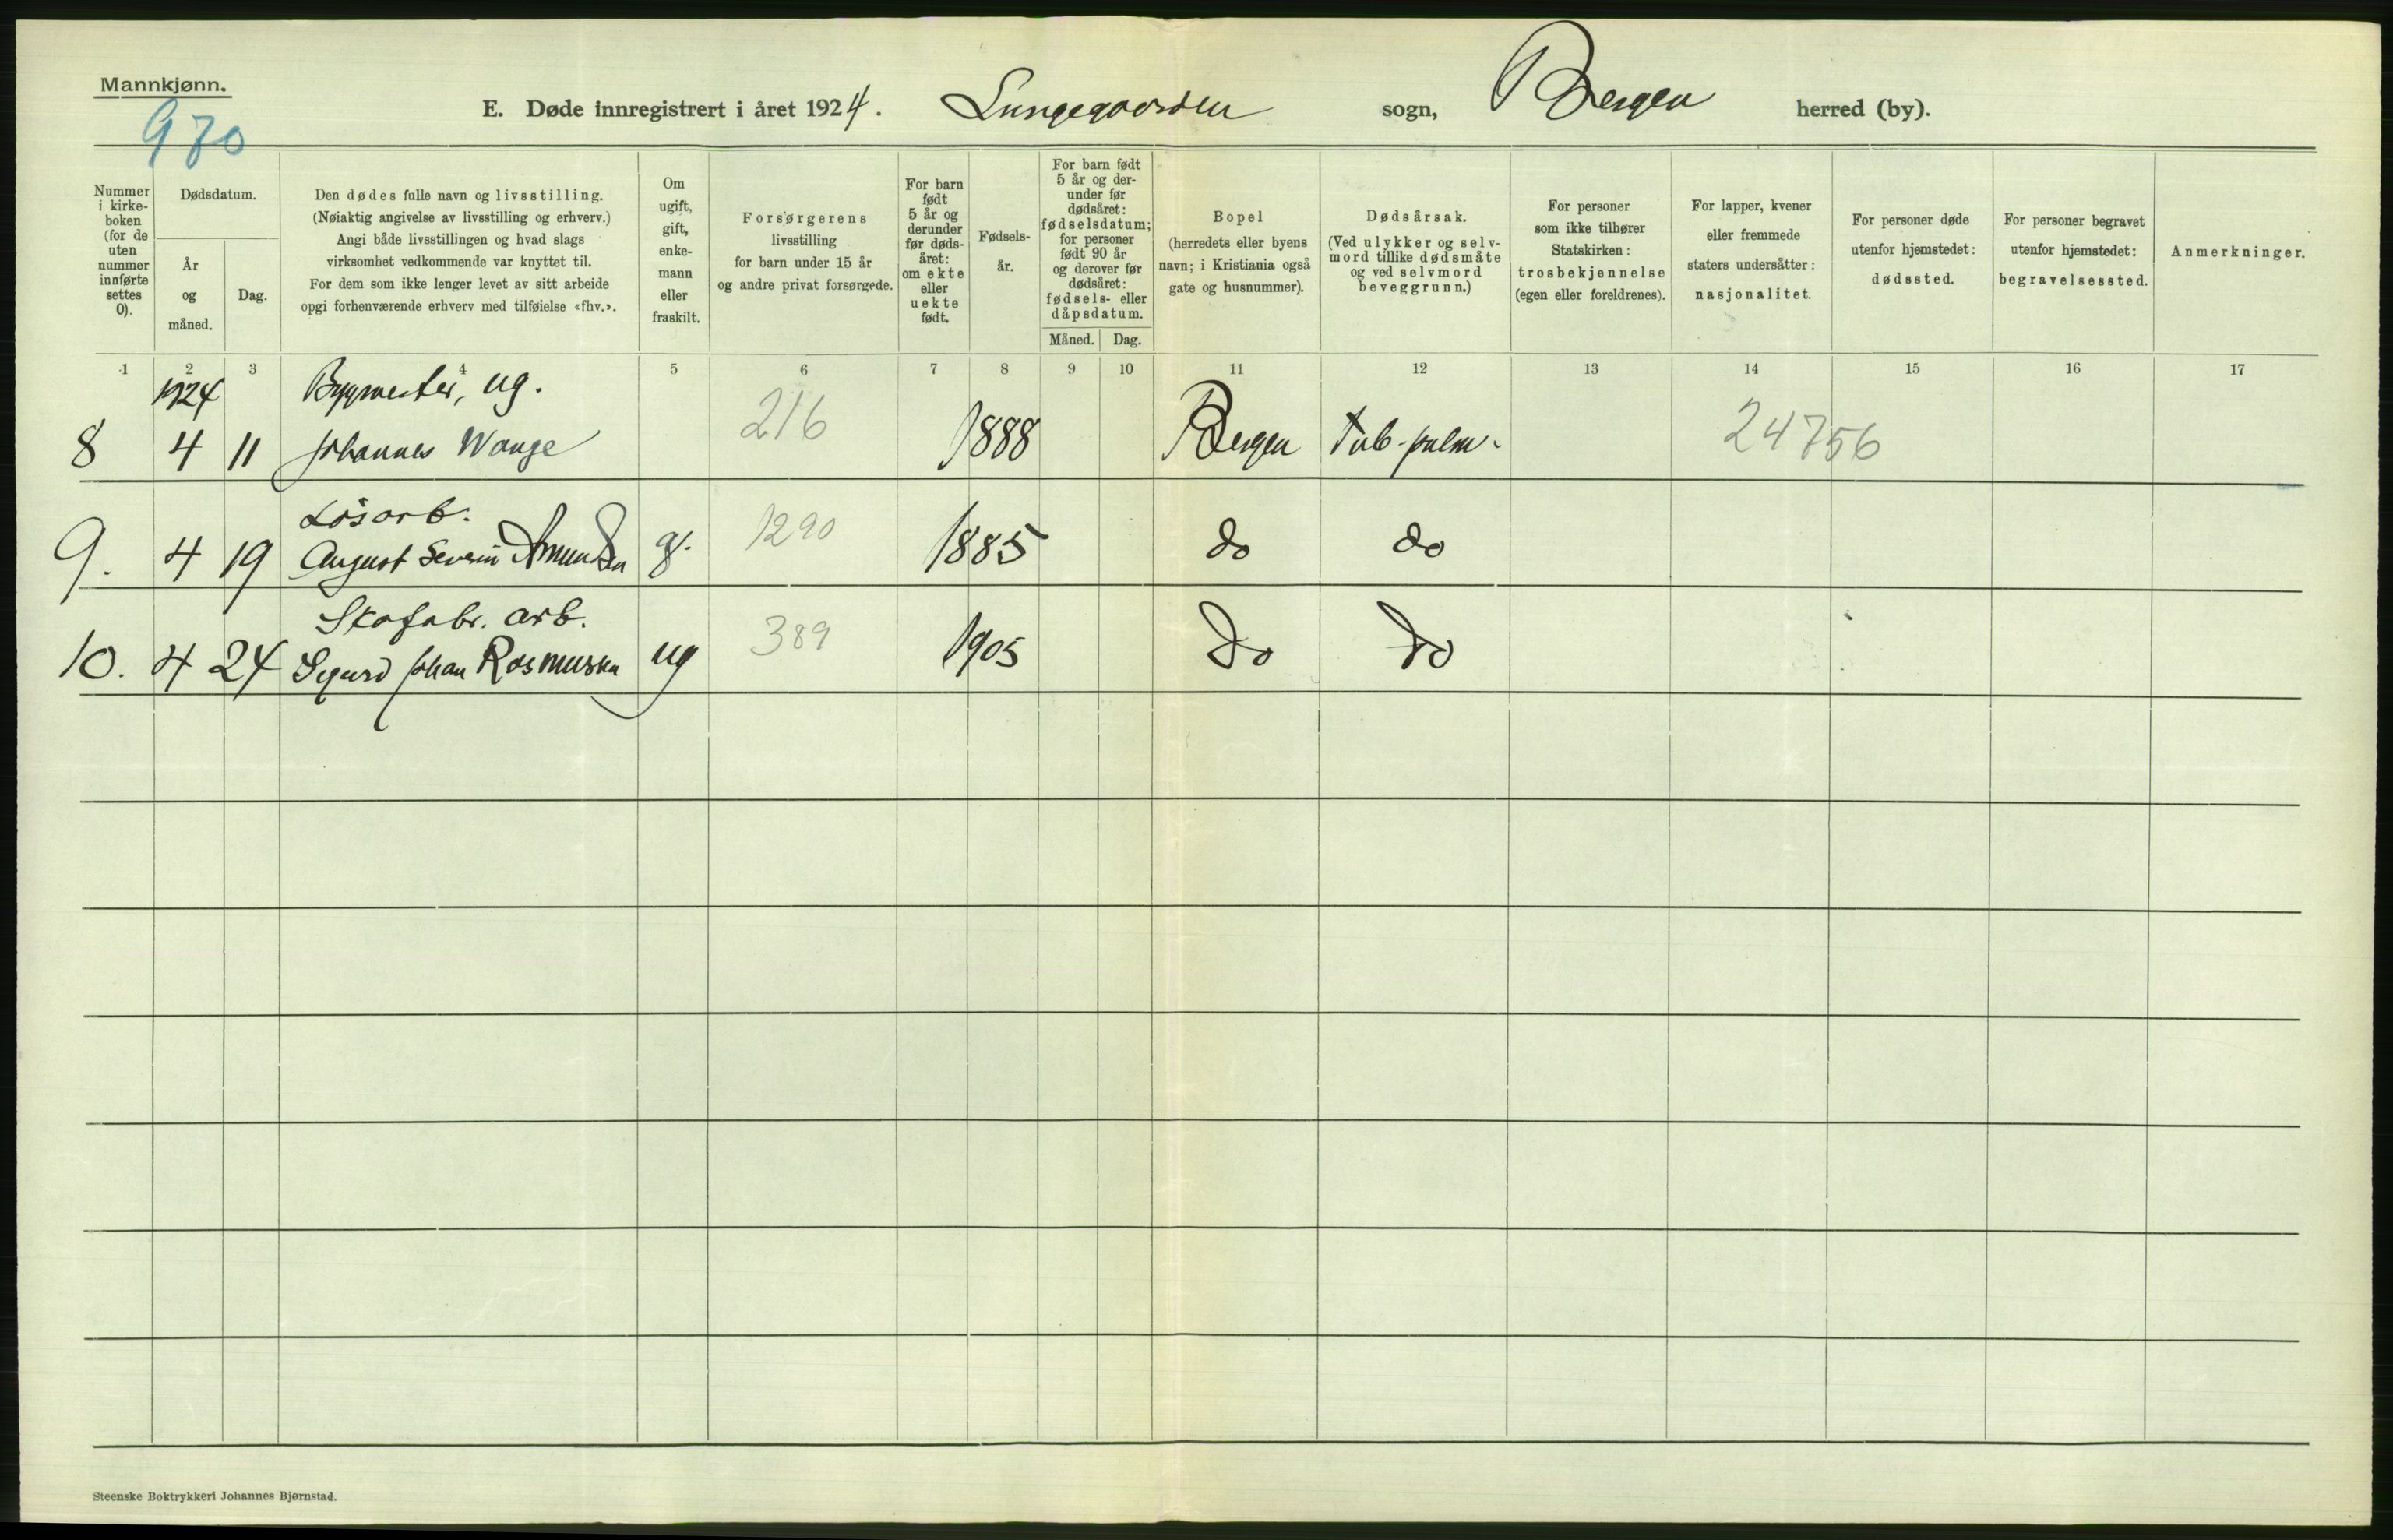 Mannkjønn.
970
E. Døde innregistrert i året 1924. Lungegaarden sogn, Bergen herred (by).
Nummer i kirkeboken (for de uten nummer innførte settes 0).
Dødsdatum.
År og måned.
Dag.
Den dødes fulle navn og livsstilling.
(Nøiaktig angivelse av livsstilling og erhverv.)
Angi både livsstillingen og hvad slags
virksomhet vedkommende var knyttet til.
For dem som ikke lenger levet av sitt arbeide
opgi forhenværende erhverv med tilføielse «fhv.».
Om ugift, gift, enkemann eller fraskilt.
Forsørgerens
livsstilling
for barn under 15 år
og andre privat forsørgede.
For barn født 5 år og derunder før dødsåret: om ekte eller uekte født.
Fødselsår.
For barn født 5 år og derunder før dødsåret: fødselsdatum; for personer født 90 år og derover før dødsåret: fødsels- eller dåpsdatum.
Måned. Dag.
Bopel
(herredets eller byens
navn; i Kristiania også
gate og husnummer).
Dødsårsak.
(Ved ulykker og selvmord tillike dødsmåte
og ved selvmord
beveggrunn.)
For personer
som ikke tilhører
Statskirken:
trosbekjennelse
(egen eller foreldrenes).
For lapper, kvener
eller fremmede
staters undersåtter:
nasjonalitet.
For personer døde
utenfor hjemstedet:
dødssted.
For personer begravet
utenfor hjemstedet:
begravelsessted.
Anmerkninger.
1 2 3 4 5 6 7 8 9 10 11 12 13 14 15 16 17
1924 Bygmester, ug.
8 4 11 Johannes Wange 216 1888 Bergen Tub. pulm. 24756
Løsarb.
9. 4 19 August Severin Amundsen g. 1290 1885 do do
Skofabr. arb.
10. 4 24 Sigurd Johan Rasmussen ug 389 1905 do do
Steenske Boktrykkeri Johannes Bjørnstad.